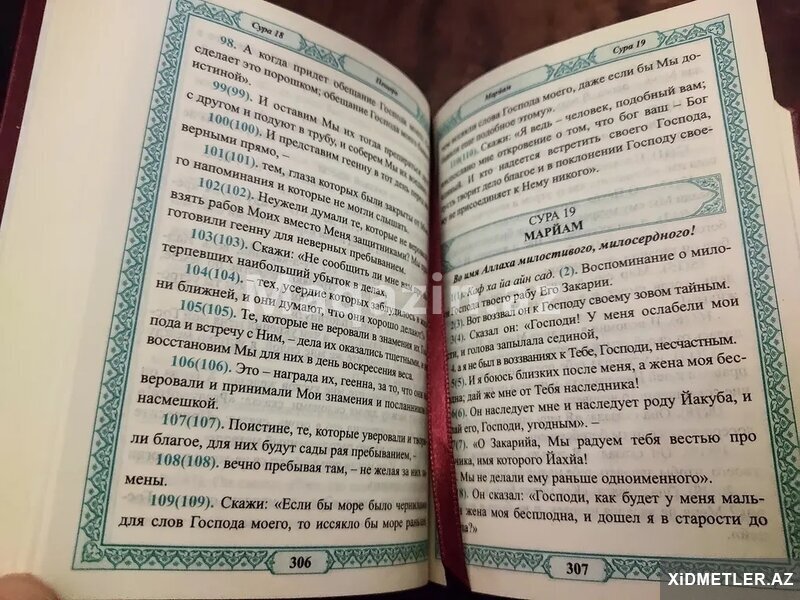 Сура 18
Пещера
98. А когда придет обещание Господа
сделает это порошком; обещание Господа моего
истиной».
99(99). И оставим Мы их тогда препираться
с другом и подуют в трубу, и соберем Мы их
100(100). И представим геенну в тот день
верными прямо, –
101(101). тем, глаза которых были закрыты от
го напоминания и которые не могли слышать.
102(102). Неужели думали те, которые не
взять рабов Моих вместо Меня защитниками?
готовили геенну для неверных пребыванием.
103(103). Скажи: «Не сообщить ли мне вам
терпевших наибольший убыток в делах,
104(104). тех, усердие которых заблудилось в
ни ближней, и они думают, что они хорошо делают?
105(105). Те, которые не веровали в знамения их
пода и встречу с Ним, – дела их оказались тщетными, и
восстановим Мы для них в день воскресения веса.
106(106). Это – награда их, геенна, за то, что они
веровали и принимали Мои знамения и посланников
насмешкой.
107(107). Поистине, те, которые уверовали и
ли благое, для них будут сады рая пребыванием, –
108(108). вечно пребывая там, – не желая за них
мены.
109(109). Скажи: «Если бы море было чернилами
для слов Господа моего, то иссякло бы море раньше,
306
Марйам
Сура 19
слова Господа моего, даже если бы Мы до-
подобное этому».
110(110). Скажи: «Я ведь – человек, подобный вам;
мне откровение о том, что бог ваш – Бог
И кто надеется встретить своего Господа,
творит дело благое и в поклонении Господу свое-
не присоединяет к Нему никого».
СУРА 19
МАРЙАМ
Во имя Аллаха милостивого, милосердного!
Каф ха йа айн сад. (2). Воспоминание о мило-
Господа твоего рабу Его Закарии.
2(3). Вот воззвал он к Господу своему зовом тайным.
3(4). Сказал он: «Господи! У меня ослабели мои
и голова запылала сединой,
4. а я не был в воззваниях к Тебе, Господи, несчастным.
5(5). И я боюсь близких после меня, а жена моя бес-
дай же мне от Тебя наследника!
6(6). Он наследует мне и наследует роду Йакуба, и
его, Господи, угодным». –
(7). «О Закарийа, Мы радуем тебя вестью про
имя которого Йахйа!
Мы не делали ему раньше одноименного».
Он сказал: «Господи, как будет у меня маль-
жена моя бесплодна, и дошел я в старости до
307
XiDMETLER.AZ